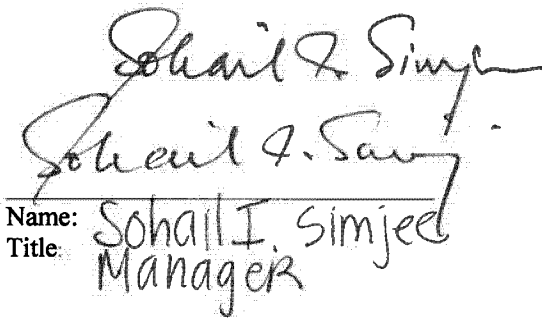 Sohail I. Simjee
Sohail I.
Name: Sohail I. Simjee
Title: Manager